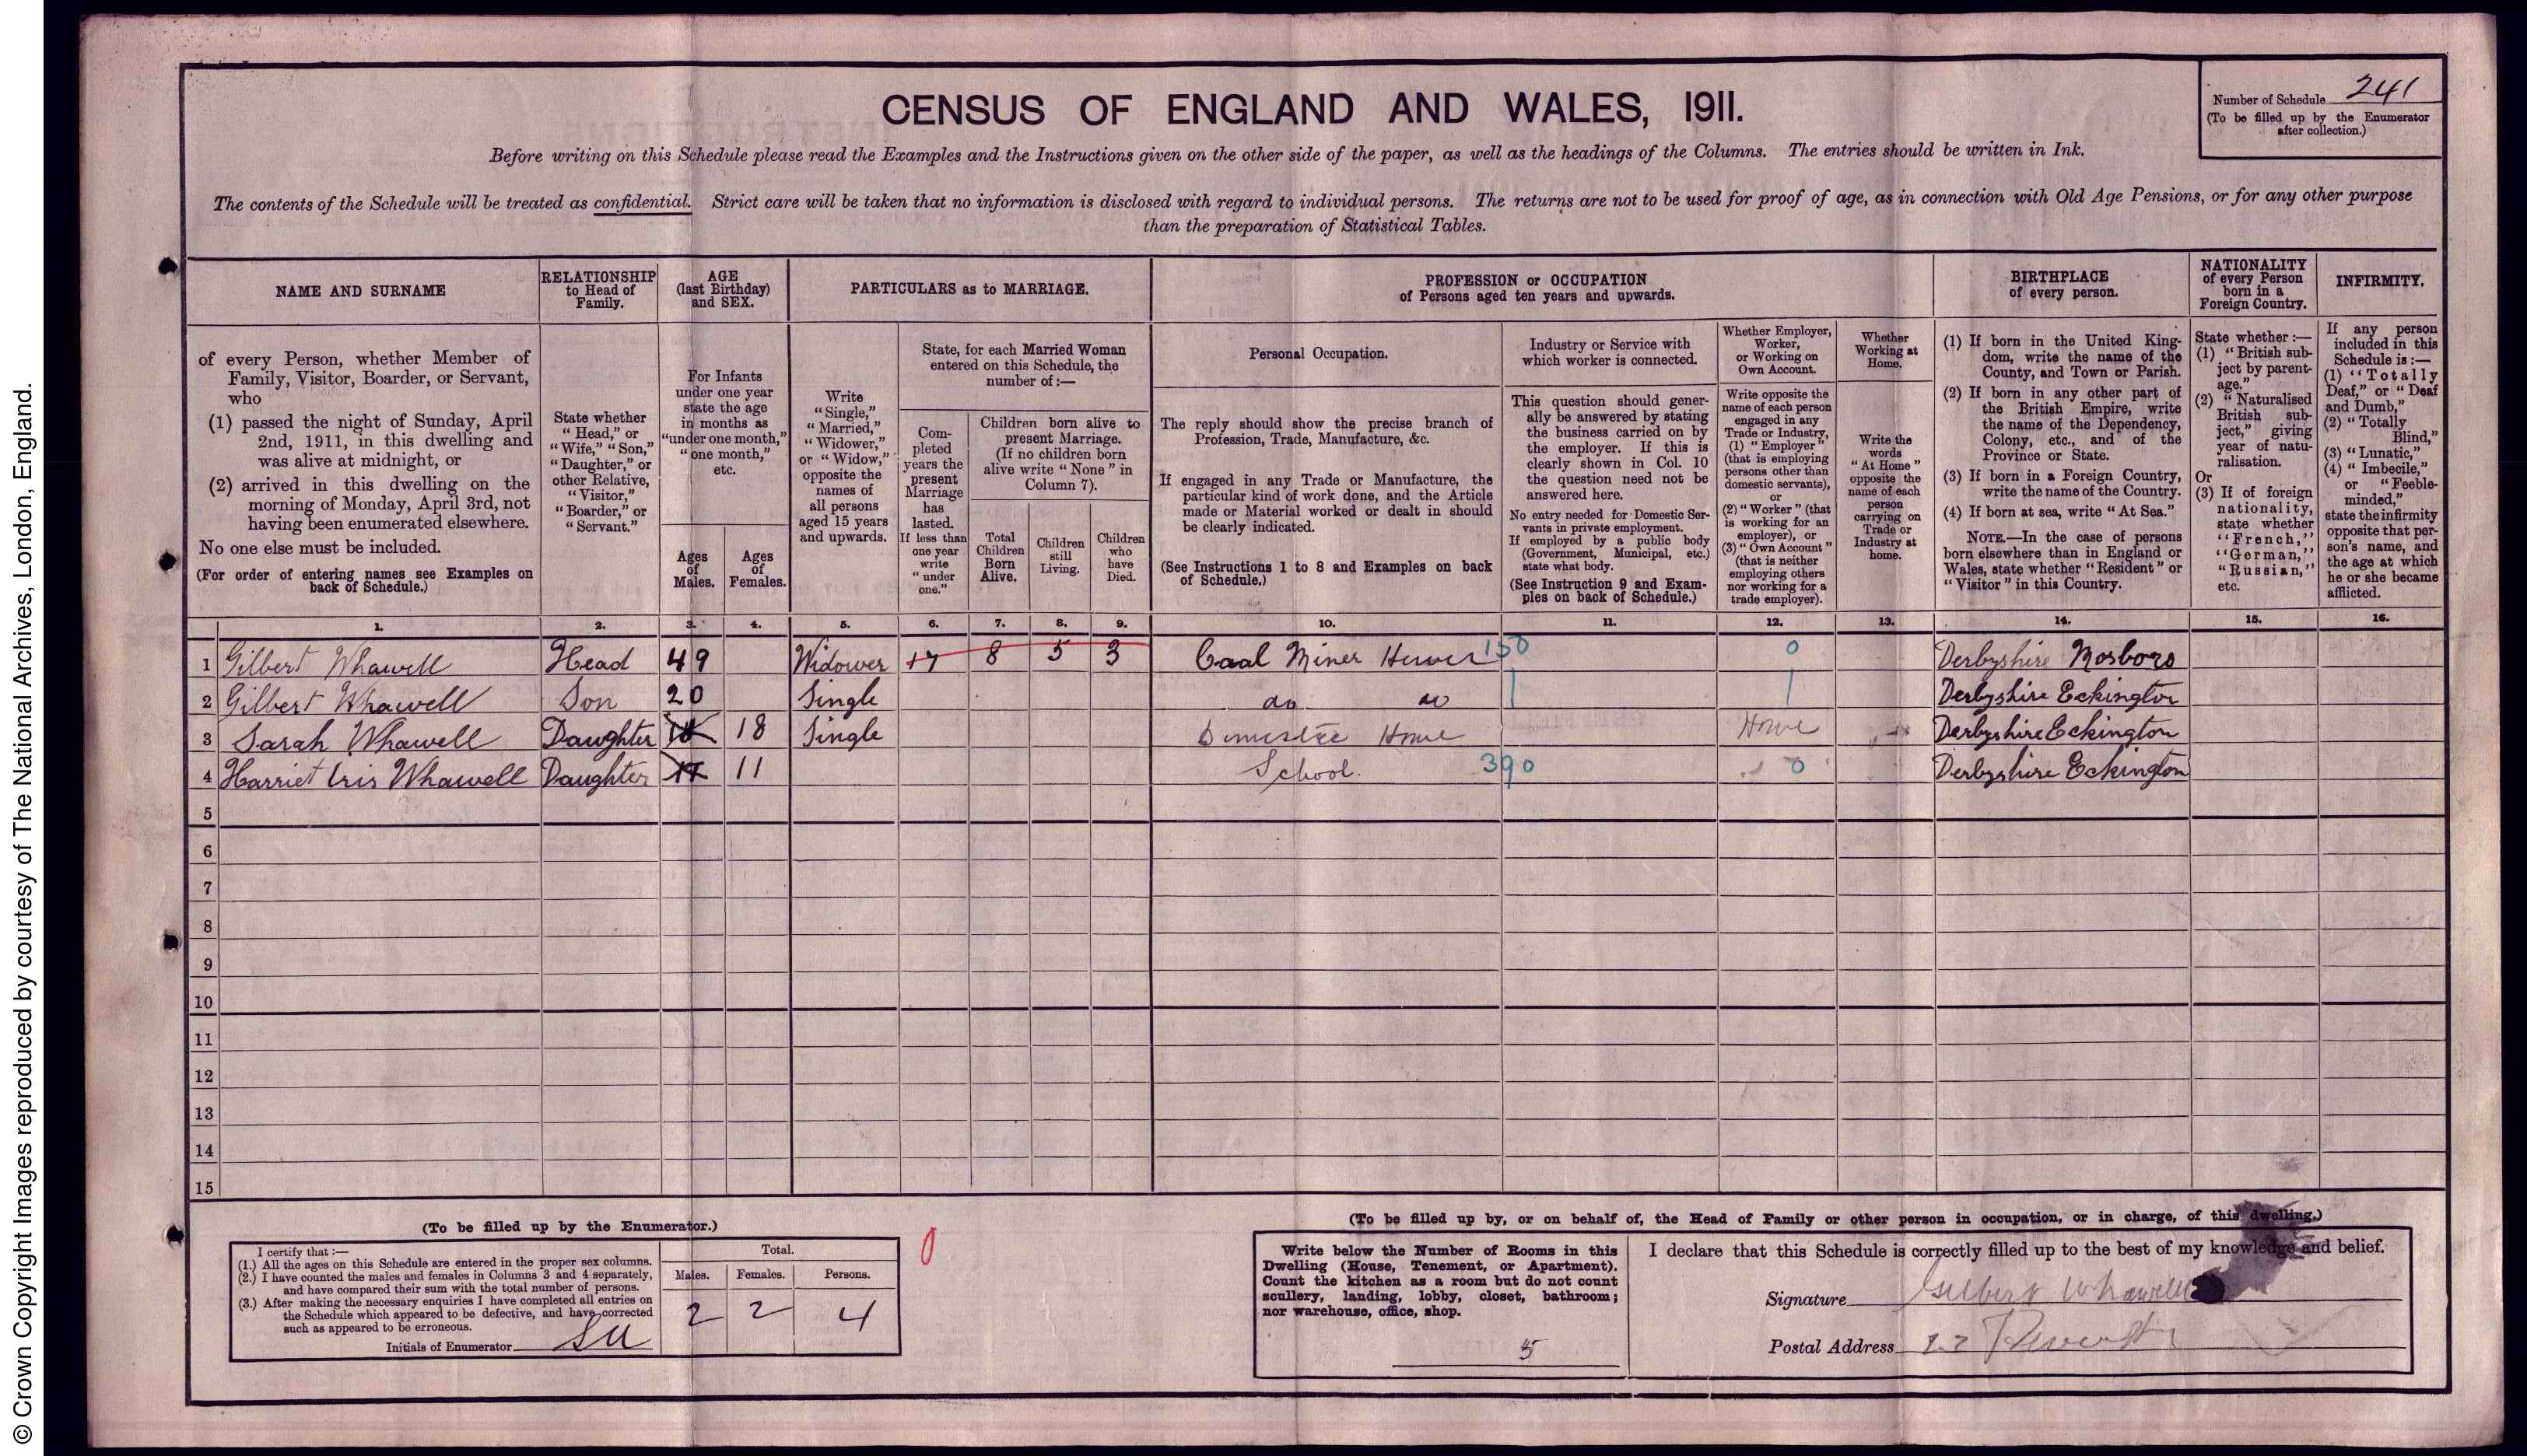 © Crown Copyright Images reproduced by courtesy of The National Archives, London, England.
CENSUS OF ENGLAND AND WALES, 1911.
Number of Schedule 241
(To be filled up by the Enumerator
after collection.)
Before writing on this Schedule please read the Examples and the Instructions given on the other side of the paper, as well as the headings of the Columns. The entries should be written in Ink.
The contents of the Schedule will be treated as confidential. Strict care will be taken that no information is disclosed with regard to individual persons. The returns are not to be used for proof of age, as in connection with Old Age Pensions, or for any other purpose
than the preparation of Statistical Tables.
NAME AND SURNAME
of every Person, whether Member of
Family, Visitor, Boarder, or Servant,
who
(1) passed the night of Sunday, April
2nd, 1911, in this dwelling and
was alive at midnight, or
(2) arrived in this dwelling on the
morning of Monday, April 3rd, not
having been enumerated elsewhere.
No one else must be included.
(For order of entering names see Examples on
back of Schedule.)
RELATIONSHIP
to Head of
Family.
State whether
"Head," or
"Wife," "Son,"
"Daughter," or
other Relative,
"Visitor,"
"Boarder," or
"Servant."
AGE
(last Birthday)
and SEX.
For Infants
under one year
state the age
in months as
"under one month,"
"one month,"
etc.
Ages
of
Males.
Ages
of
Females.
PARTICULARS as to MARRIAGE.
Write
"Single,"
"Married,"
"Widower,"
or "Widow,"
opposite the
names of
all persons
aged 15 years
and upwards.
State, for each Married Woman
entered on this Schedule, the
number of:—
Com-
pleted
years the
present
Marriage
has
lasted.
If less than
one year
write
"under
one."
Children born alive to
present Marriage.
(If no children born
alive write "None" in
Column 7).
Total
Children
Born
Alive.
Children
still
Living.
Children
who
have
Died.
PROFESSION or OCCUPATION
of Persons aged ten years and upwards.
Personal Occupation.
The reply should show the precise branch of
Profession, Trade, Manufacture, &c.
If engaged in any Trade or Manufacture, the
particular kind of work done, and the Article
made or Material worked or dealt in should
be clearly indicated.
(See Instructions 1 to 8 and Examples on back
of Schedule.)
Industry or Service with
which worker is connected.
This question should gener-
ally be answered by stating
the business carried on by
the employer. If this is
clearly shown in Col. 10
the question need not be
answered here.
No entry needed for Domestic Ser-
vants in private employment.
If employed by a public body
(Government, Municipal, etc.)
state what body.
(See Instruction 9 and Exam-
ples on back of Schedule.)
Whether Employer,
Worker,
or Working on
Own Account.
Write opposite the
name of each person
engaged in any
Trade or Industry,
(1) "Employer"
(that is employing
persons other than
domestic servants),
or
(2) "Worker" (that
is working for an
employer), or
(3) "Own Account"
(that is neither
employing others
nor working for a
trade employer).
Whether
Working at
Home.
Write the
words
"At Home"
opposite the
name of each
person
carrying on
Trade or
Industry at
home.
BIRTHPLACE
of every person.
(1) If born in the United King-
dom, write the name of the
County, and Town or Parish.
(2) If born in any other part of
the British Empire, write
the name of the Dependency,
Colony, etc., and of the
Province or State.
(3) If born in a Foreign Country,
write the name of the Country.
(4) If born at sea, write "At Sea."
NOTE.—In the case of persons
born elsewhere than in England or
Wales, state whether "Resident" or
"Visitor" in this Country.
NATIONALITY
of every Person
born in a
Foreign Country.
State whether:—
(1) "British sub-
ject by parent-
age,"
(2) "Naturalised
British sub-
ject," giving
year of natu-
ralisation.
Or
(3) If of foreign
nationality,
state whether
"French,"
"German,"
"Russian,"
etc.
INFIRMITY.
If any person
included in this
Schedule is:—
(1) "Totally
Deaf," or "Deaf
and Dumb,"
(2) "Totally
Blind,"
(3) "Lunatic,"
(4) "Imbecile,"
or "Feeble-
minded,"
state the infirmity
opposite that per-
son's name, and
the age at which
he or she became
afflicted.
1. 2. 3. 4. 5. 6. 7. 8. 9. 10. 11. 12. 13. 14. 15. 16.
1 Gilbert Whawell Head 49 Widower 17 8 5 3 Coal Miner Hewer 150 0 Derbyshire Mosboro
2 Gilbert Whawell Son 20 Single do do Derbyshire Eckington
3 Sarah Whawell Daughter 18 18 Single Domestic Home Home Derbyshire Eckington
4 Harriet Iris Whawell Daughter 11 School. 390 0 Derbyshire Eckington
5
6
7
8
9
10
11
12
13
14
15
(To be filled up by the Enumerator.)
I certify that:—
(1.) All the ages on this Schedule are entered in the proper sex columns.
(2.) I have counted the males and females in Columns 3 and 4 separately,
and have compared their sum with the total number of persons.
(3.) After making the necessary enquiries I have completed all entries on
the Schedule which appeared to be defective, and have corrected
such as appeared to be erroneous.
Initials of Enumerator
Total.
Males. Females. Persons.
2 2 4
0
(To be filled up by, or on behalf of, the Head of Family or other person in occupation, or in charge, of this dwelling.)
Write below the Number of Rooms in this
Dwelling (House, Tenement, or Apartment).
Count the kitchen as a room but do not count
scullery, landing, lobby, closet, bathroom;
nor warehouse, office, shop.
5
I declare that this Schedule is correctly filled up to the best of my knowledge and belief.
Signature Gilbert Whawell
Postal Address